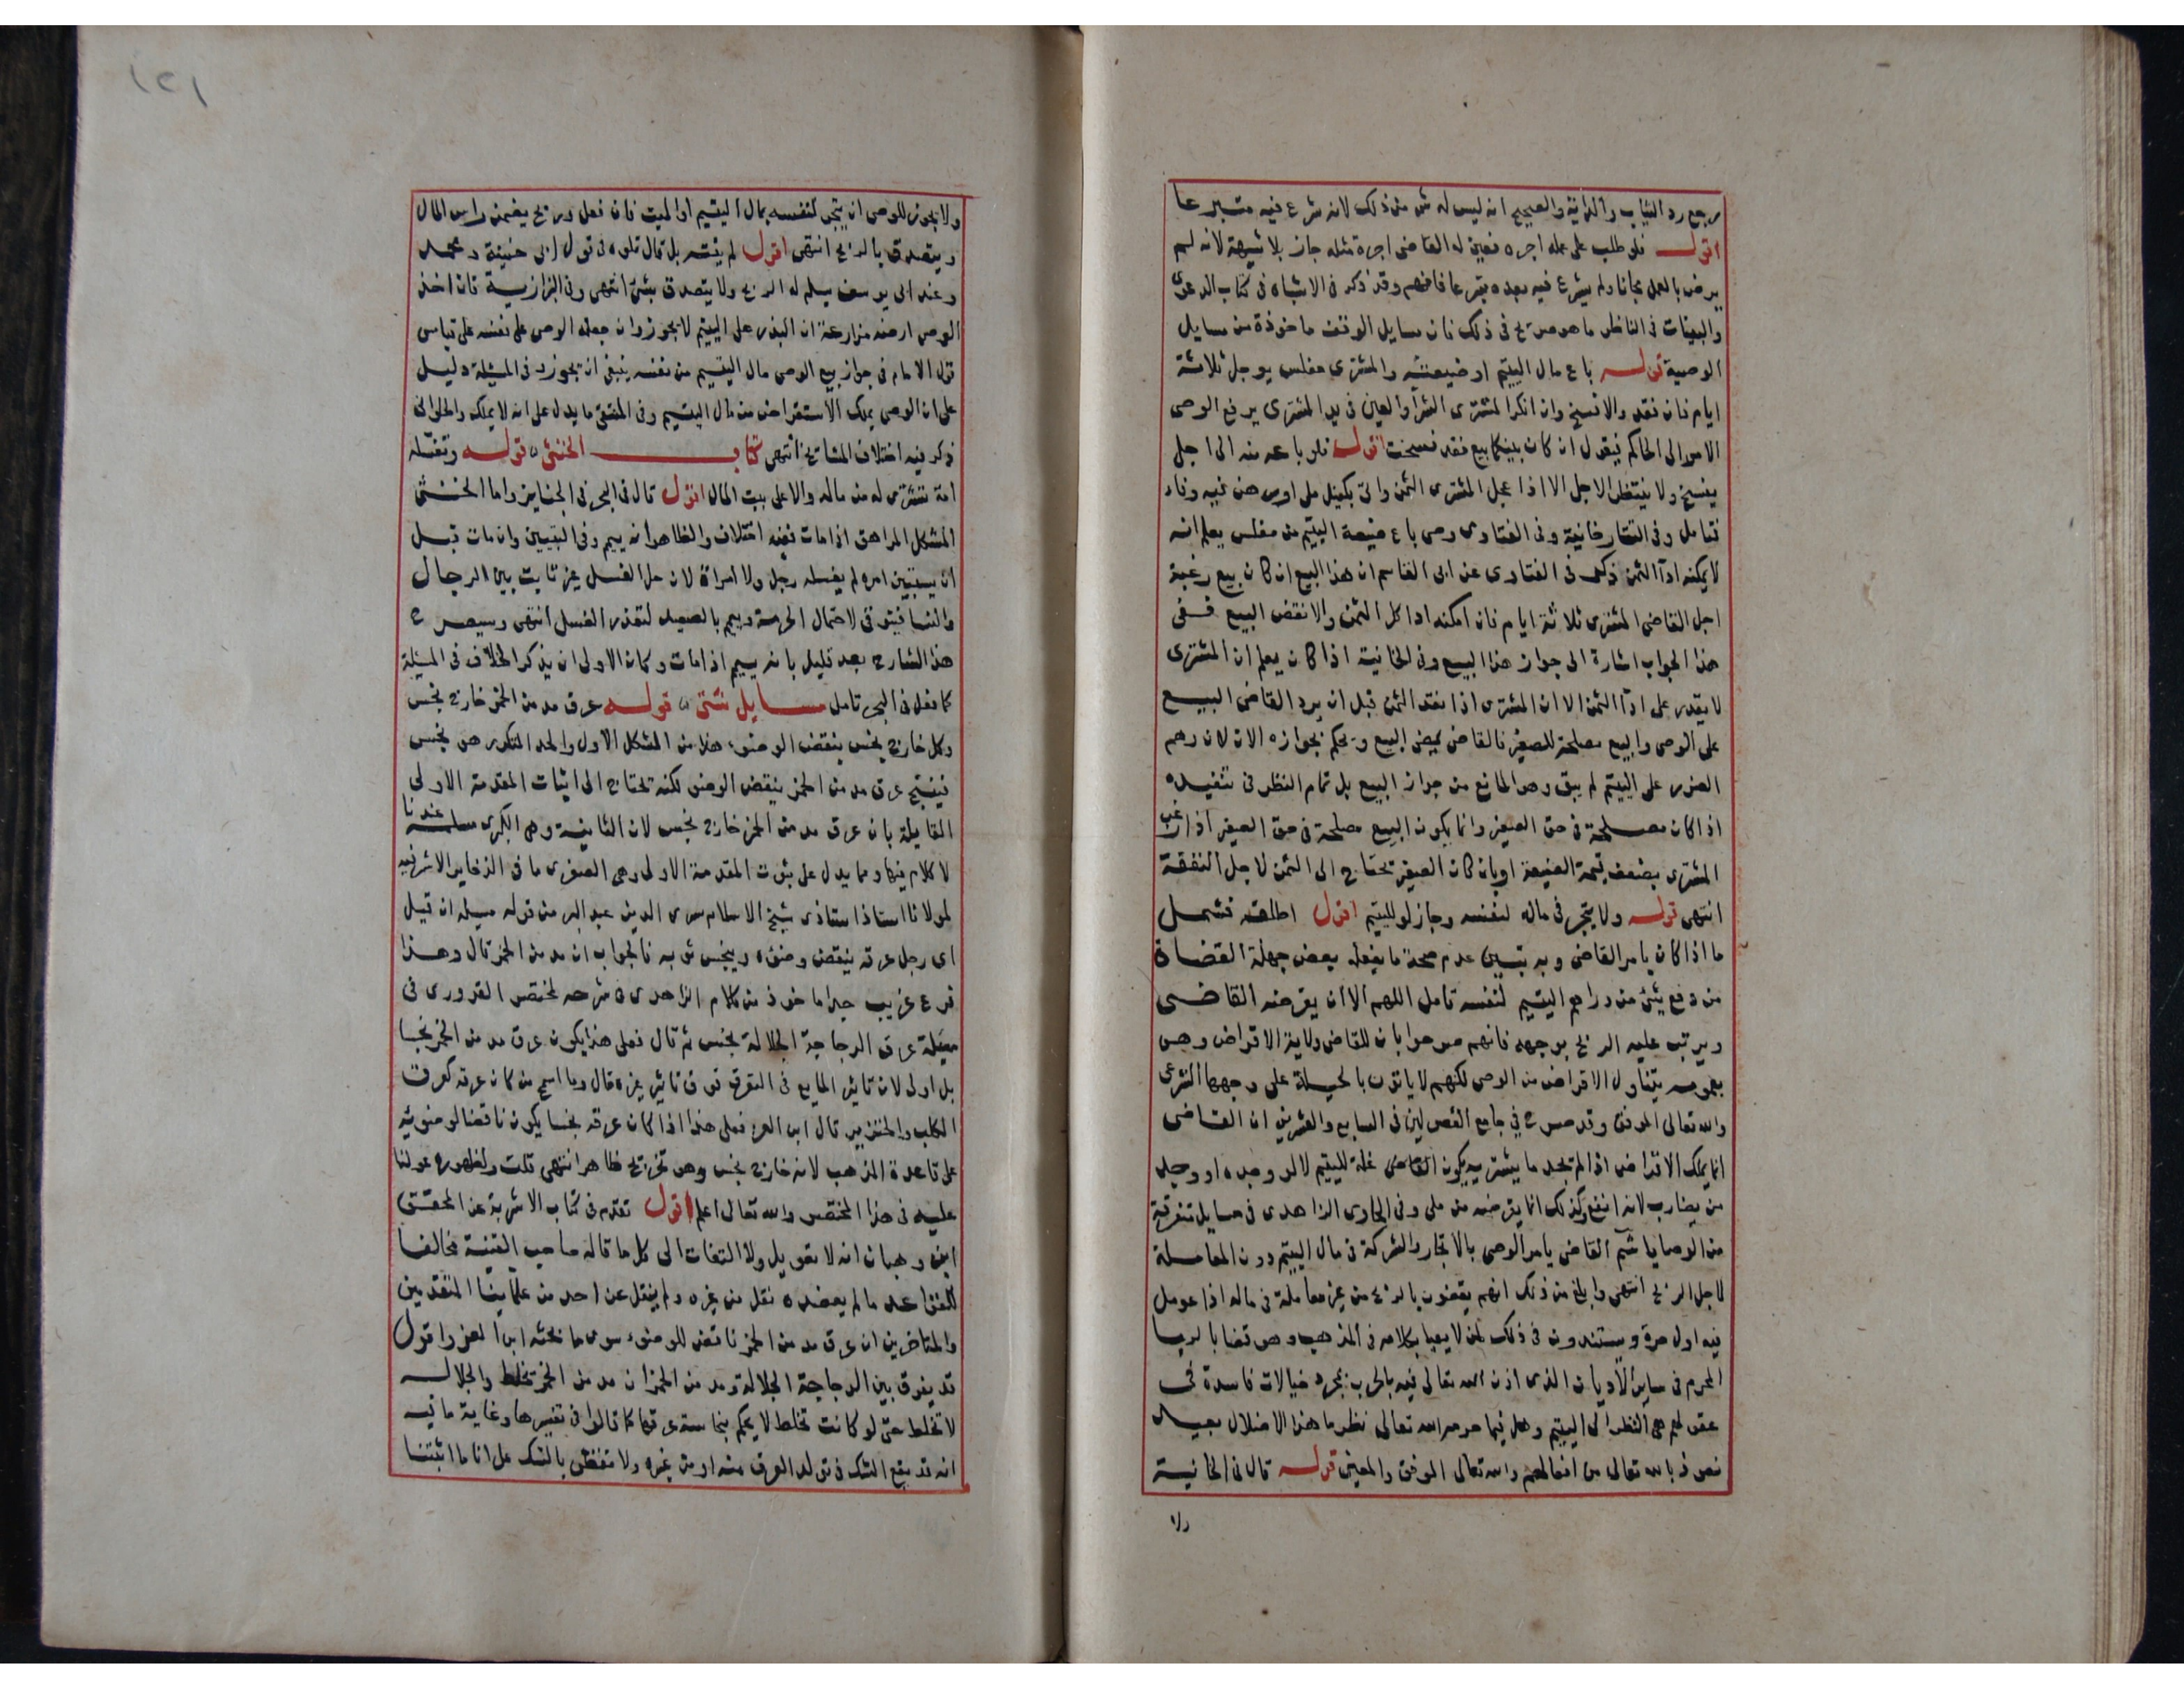 مرجع رد الثياب والدانية والصحيح انه ليس له شى من ذلك لانه شرع فيه متبرعا
اقول فلو طلب على عمله اجره فعين له القاضى اجرة مثله جاز بلا شبهة لانه لم
يرض بالعمل مجانا ولم يشرع فيه بعده متبرعا فافهم وقد ذكر فى الاشباه فى كتاب الدعوى
والبينات فى الناظر ما هو صريح فى ذلك فان مسايل الوقف ماخوذة من مسايل
الوصية قوله باع مال اليتيم او ضيعته والمشترى مفلس يوجل ثلاثة
ايام فان نقد والا فسخ وان انكر المشترى الشرا والعين فى يد المشترى يرفع الوصى
الامر الى الحاكم فيقول ان كان بينكما بيع فقد فسخت اقول فلو باعه منه الى اجل
يفسخ ولا ينتظر الاجل الا اذا عجل المشترى الثمن واتى بكفيل ملى او رهن فيه وفاء
فتامل وفى التتارخانية وفى الفتاوى وصى باع ضيعة اليتيم من مفلس يعلم انه
لا يمكنه ادآ الثمن ذكر فى الفتاوى عن ابى القاسم ان هذا البيع ان كان بيع رغبة
اجل القاضى المشترى ثلاثة ايام فان امكنه ادا كل الثمن والا نقض البيع ففى
هذا الجواب اشارة الى جواز هذا البيع وفى الخانية اذا كان يعلم ان المشترى
لا يقدر على ادآ الثمن الا ان المشترى اذا نقد الثمن قبل ان يرد القاضى البيع
على الوصى والبيع مصلحة للصغير فالقاضى يمضى البيع ويحكم بجوازه الان لان وهم
الضرر على اليتيم لم يبق وهو المانع من جواز البيع بل تمام النظر فى تنفيذه
اذا كان مصلحة فى حق الصغير وانما يكون البيع مصلحة فى حق الصغير اذا رغب
المشترى بضعف قيمة الضيعة او بان كان الصغير يحتاج الى الثمن لاجل النفقة
انتهى قوله ولا يتجر فى ماله لنفسه وجاز لو لليتيم اقول اطلقه فشمل
ما اذا كان بامر القاضى وبه تبين عدم صحة ما يفعله بعض جهلة القضاة
من دفع شئ من دراهم اليتيم لنفسه تامل اللهم الا ان يقرضه القاضى
ويرتب عليه الربح بوجهه فانهم صرحوا بان للقاضى ولاية الاقراض وهو
بعمومه يتناول الاقراض من الوصى لكنهم لا ياتون بالحيلة على وجهها الشرعى
والله تعالى الموفق وقد صرح فى جامع الفصولين فى السابع والعشرين ان القاضى
انما يملك الاقراض اذا لم يجد ما يشتريه يكون القاضى غلة لليتيم لا لو وجده او وجد
من يضارب لانه انفع وكذلك انما يقرضه من ملى وفى الحاوى الزاهدى فى مسايل متفرقة
من الوصايا شم القاضى يامر الوصى بالاتجار والشركة فى مال اليتيم دون المعاملة
لاجل الربح انتهى وابلغ من ذلك انهم يقضون بالربح من غير معاملة فى ماله اذا عومل
فيه اول مرة ويستندون فى ذلك لمن لا يعبا بكلامه فى المذهب وهو قضا بالربا
المحرم فى ساير الاديان الذى اذن الله تعالى فيه بالحرب بمجرد خيالات فاسدة فى
عقولهم هى النظر الى اليتيم وهل فيما حرمه الله تعالى نظر ما هذا الا ضلال بعيد
نعوذ بالله تعالى من افعالهم والله تعالى الموفق والمعين قوله قال فى الخانية
ولا
١٢١
ولا يجوز للوصى ان يتجر لنفسه بمال اليتيم او الميت فان فعل وربح يضمن راس المال
ويتصدق بالربح انتهى اقول لم ينته بل قال تلوه فى قول ابى حنيفة ومحمد
وعند ابى يوسف يسلم له الربح ولا يتصدق بشئ انتهى وفى البزازية فان اخذ
الوصى ارضه مزارعة ان البذر على اليتيم لا يجوز وان جعله الوصى على نفسه على قياس
قول الامام فى جواز بيع الوصى مال اليتيم من نفسه ينبغى ان يجوز وفى المسئلة دليل
على ان الوصى يملك الاستقراض من مال اليتيم وفى المنتقى ما يدل على انه لا يملك والحلوانى
ذكر فيه اختلاف المشايخ انتهى كتاب الخنثى قوله وتغسله
امة تشترى له من ماله والا على بيت المال اقول قال فى البحر فى الجنايز واما الخنثى
المشكل المراهق اذا مات ففيه اختلاف والظاهر انه ييمم وفى التبيين وان مات قبل
ان يستبين امره لم يغسله رجل ولا امراة لان حل الغسل غير ثابت بين الرجال
والنسا فيتوقى لاحتمال الحرمة وييمم بالصعيد لتعذر الغسل انتهى وسيصرح
هذا الشارح بعد قليل بانه ييمم اذا مات وكان الاولى ان يذكر الخلاف فى المسئلة
كما فعل فى البحر تامل مسايل شتى قوله عرق مدمن الخمر خارج نجس
وكل خارج نجس ينقض الوضوء هذا من الشكل الاول والحد المتكرر هو نجس
فينتج عرق مدمن الخمر ينقض الوضو لكنه يحتاج الى اثبات المقدمة الاولى
القايلة بان عرق مدمن الخمر خارج نجس لان الثانية وهى الكبرى مسلمة عندنا
لا كلام فيها ومما يدل على ثبوت المقدمة الاولى وهى الصغرى ما فى الذخاير الاشرفيه
لمولانا استاذ استاذى شيخ الاسلام سرى الدين عبد البر من قوله مسيله ان قيل
اى رجل عرقه ينقض وضوءه وينجس ثوبه فالجواب انه مدمن الخمر قال وهذا
فرع غريب جدا ماخوذ من كلام الزاهدى فى شرحه لمختصر القدورى فى
مسئلة عرق الدجاجة الجلالة نجس ثم قال فعلى هذا يكون عرق مدمن الخمر نجسا
بل اولى لان تاثير المايع فى التعرق فوق تاثير غيره قال وما اسمج من كان عرقه كعرق
الكلب والخنزير قال ابن العز فعلى هذا اذا كان عرقه نجسا يكون ناقضا لوضوئه
على قاعدة المذهب لانه خارج نجس وهو تخريج ظاهر انتهى قلت ولظهوره عولنا
عليه فى هذا المختصر والله تعالى اعلم اقول تقدم فى كتاب الاشربة عن المحقق
ابن وهبان انه لا تعويل ولا التفات الى كل ما قاله صاحب القنية مخالفا
للقواعد ما لم يعضده نقل من غيره ولم ينقل عن احد من علمائنا المتقدمين
والمتاخرين ان عرق مدمن الخمر ناقض للوضوء سوى ما بحثه ابن العز واقول
قد يفرق بين الدجاجة الجلالة ومدمن الخمر ان مدمن الخمر تخلط والجلاله
لا تخلط حتى لو كانت تخلط لا يحكم بنجاسة عرقها كما قالوا فى تفسيرها وغاية ما فيه
انه قد يقع الشك فى تولد العرق منه او من غيره ولا تنقض بالشك على انا ما اثبتنا